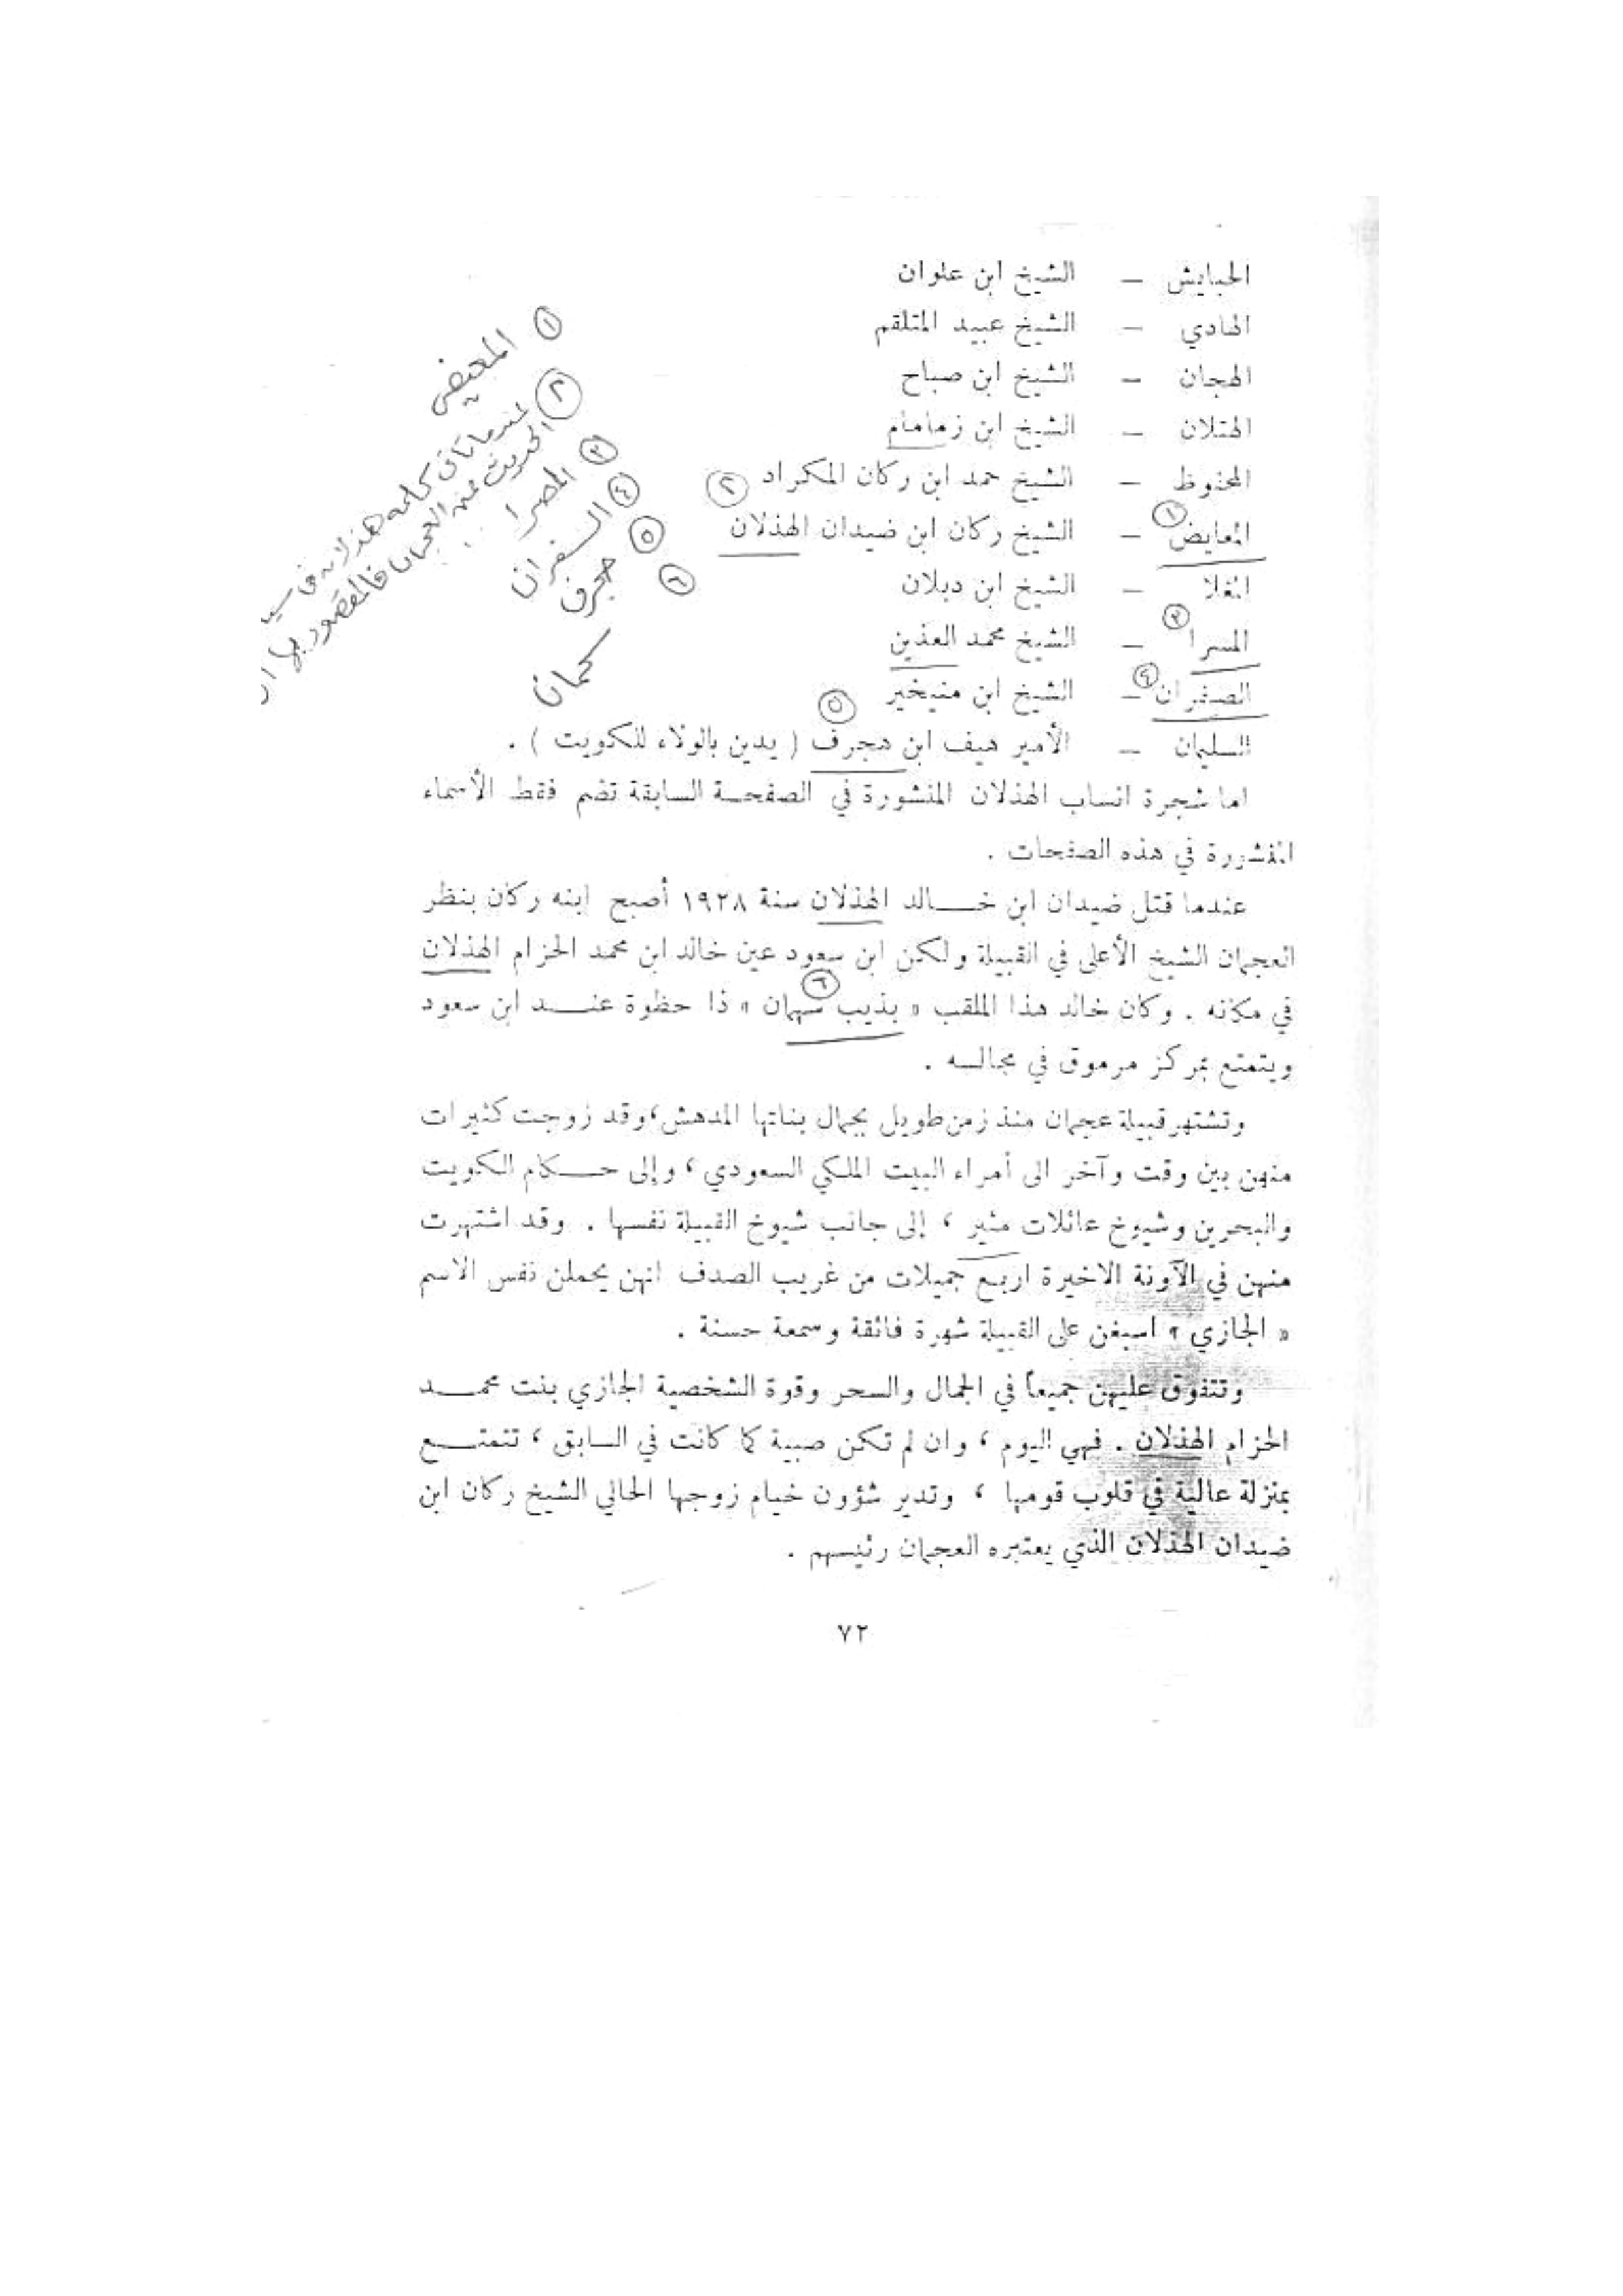 الحبايش – الشيخ ابن علوان
الهادي – الشيخ عبيد المتلقم
الهجان – الشيخ ابن صباح
الهتلان – الشيخ ابن زمامام
المحفوظ – الشيخ حمد ابن ركان المكراد ٢
المعايض ١ – الشيخ ركان ابن ضيدان الهذلان
الشيخ ابن دبلان –
المسرا ٣ – الشيخ محمد العذين
الصفران ٤ – الشيخ ابن منيخير
السليمان – الأمير هيف ابن هجرف ٥ ( يدين بالولاء للكويت ) .
اما شجرة انساب الهذلان المنشورة في الصفحة السابقة تضم فقط الأسماء
المنشورة في هذه الصفحات .
عندما قتل ضيدان ابن خالد الهذلان سنة ١٩٢٨ أصبح ابنه ركان بنظر
العجمان الشيخ الأعلى في القبيلة ولكن ابن سعود عين خالد ابن محمد الحزام الهذلان
في مكانه . وكان خالد هذا الملقب « بذيب سهمان » ٦ ذا حظوة عند ابن سعود
ويتمتع بمركز مرموق في مجالسه .
وتشتهر قبيلة عجمان منذ زمن طويل بجمال بناتها المدهش، وقد زوجت كثيرات
منهن بين وقت وآخر الى أمراء البيت الملكي السعودي ، وإلى حكام الكويت
والبحرين وشيوخ عائلات مثير ، إلى جانب شيوخ القبيلة نفسها . وقد اشتهرت
منهن في الآونة الاخيرة اربع جميلات من غريب الصدف انهن يحملن نفس الاسم
« الجازي » اسبغن على القبيلة شهرة فائقة وسمعة حسنة .
وتتفوق عليهن جميعاً في الجمال والسحر وقوة الشخصية الجازي بنت محمد
الحزام الهذلان . فهي اليوم ، وان لم تكن صبية كما كانت في السابق ، تتمتع
بمنزلة عالية في قلوب قومها ، وتدير شؤون خيام زوجها الحالي الشيخ ركان ابن
ضيدان الهذلان الذي يعتبره العجمان رئيسهم .
٧٢
١ المعيض
٢ عندما تأتي كلمه هذلان في
الحديث عن العجمان فالمقصود بها
٣ المصرا
٤ السفران
٥ حجرف
٦ كحمان